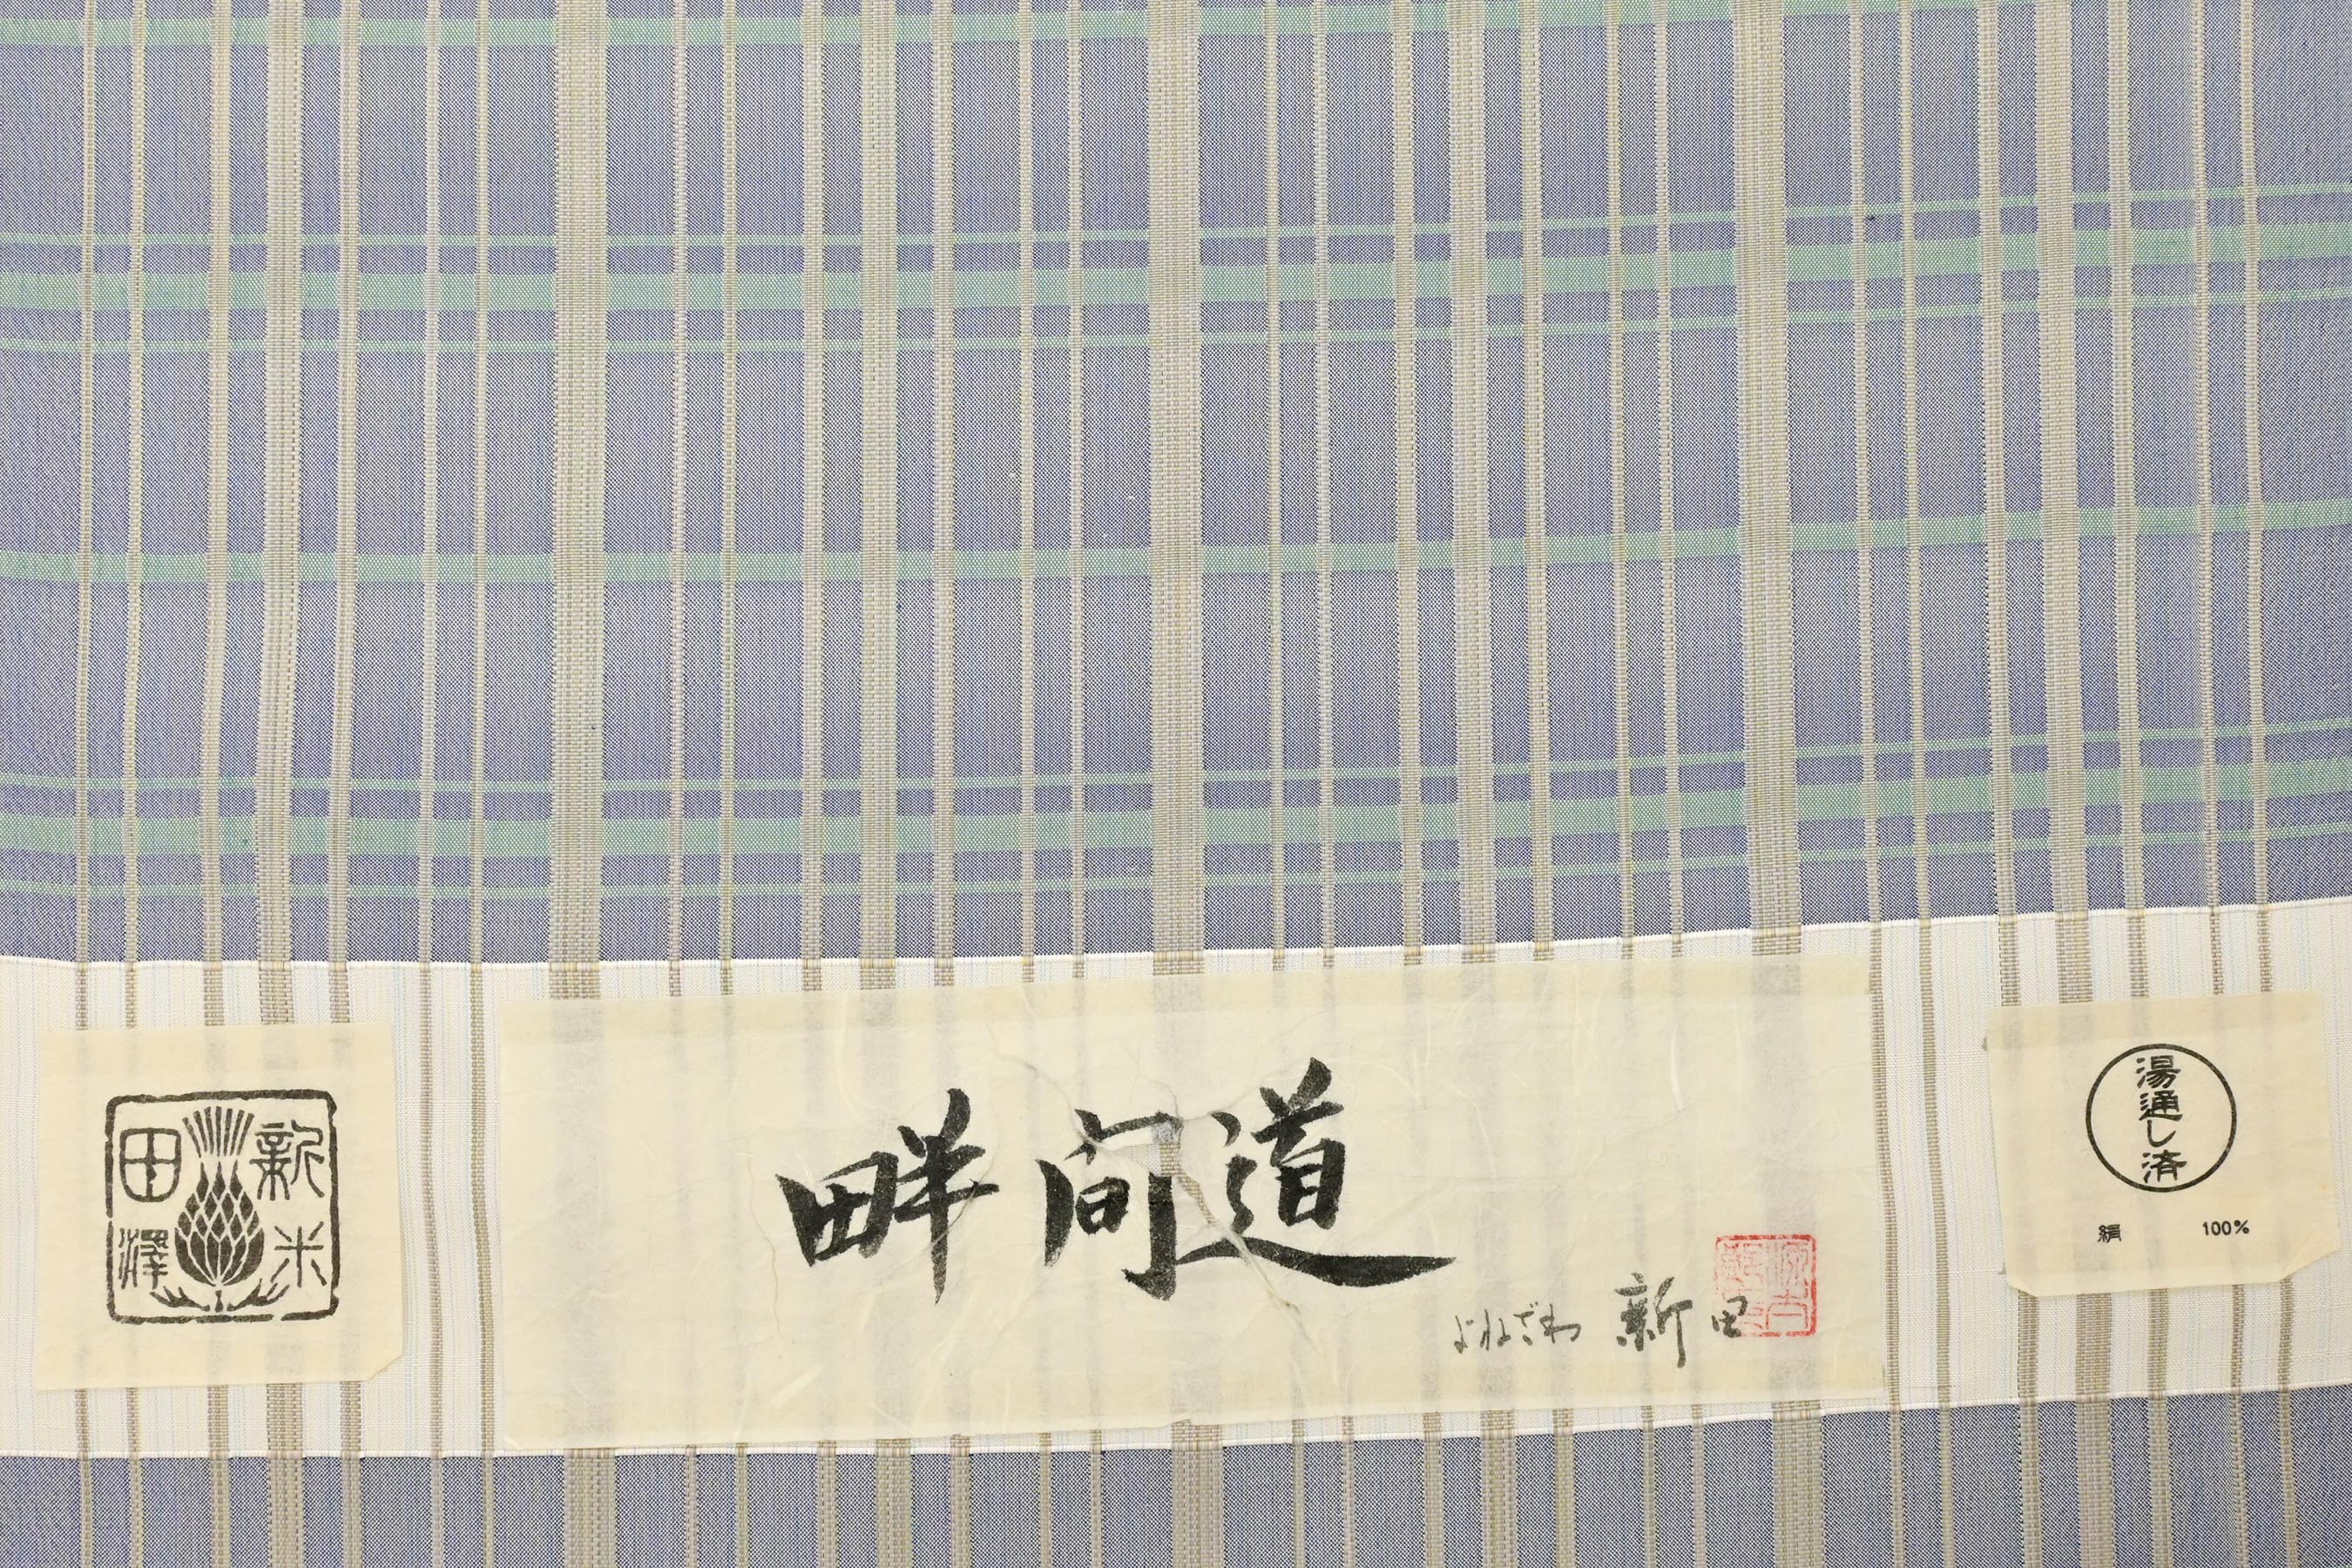 新田
米澤
畔間道
よねざわ 新田
湯通し済
絹 100%